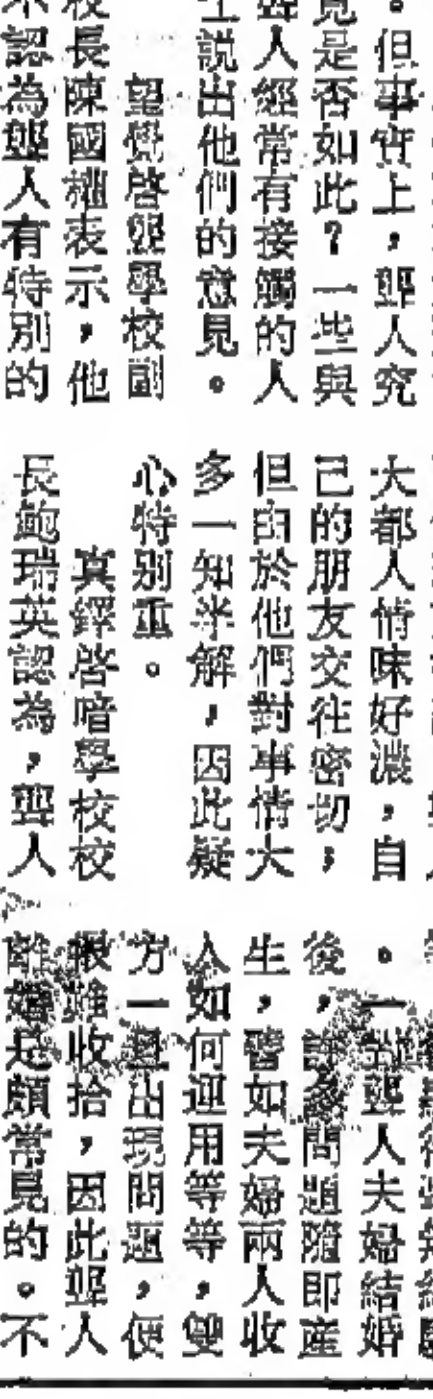 。但事實上，聾人究
竟是否如此？一些與
聾人經常有接觸的人
士說出他們的意見。
望覺啓聾學校副
校長陳國權表示，他
不認為聾人有特別的
大都人情味好濃，自
己的朋友交往密切；
但由於他們對事情大
多一知半解，因此疑
心特別重。
真鐸啓喑學校校
長鮑瑞英認為，聾人
。一對聾人夫婦結婚
後，許多問題隨即產
生，譬如夫婦兩人收
入如何運用等等，雙
方一旦出現問題，便
很難收拾，因此聾人
離婚是頗常見的。不